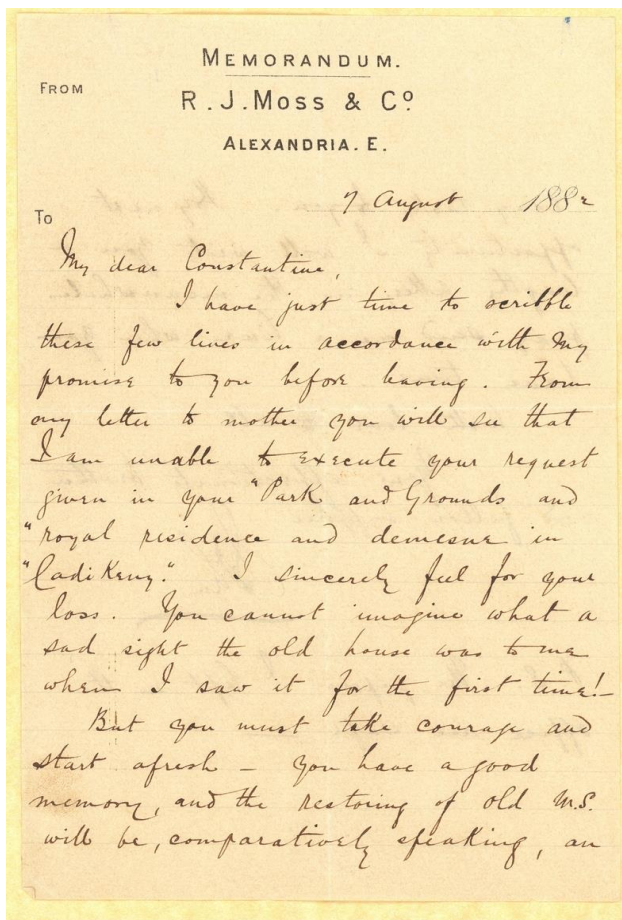 MEMORANDUM.
FROM
R. J. MOSS & Co
ALEXANDRIA. E.
7 August 1882
To
My dear Constantine,
I have just time to scribble
these few lines in accordance with my
promise to you before leaving. From
my letter to mother you will see that
I am unable to execute your request
given in your "Park and Grounds and
"royal residence and demesne in
"Cadikeny." I sincerely feel for your
loss. You cannot imagine what a
sad sight the old house was to me
when I saw it for the first time! –
But you must take courage and
start afresh – you have a good
memory, and the restoring of old M.S.
will be, comparatively speaking, an